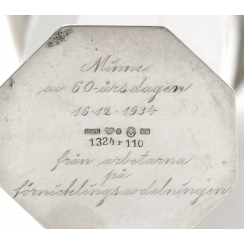 Minne
av 60-årsdagen
16-12-1934
1324 110
från arbetarna
på
förnicklingsavdelningen